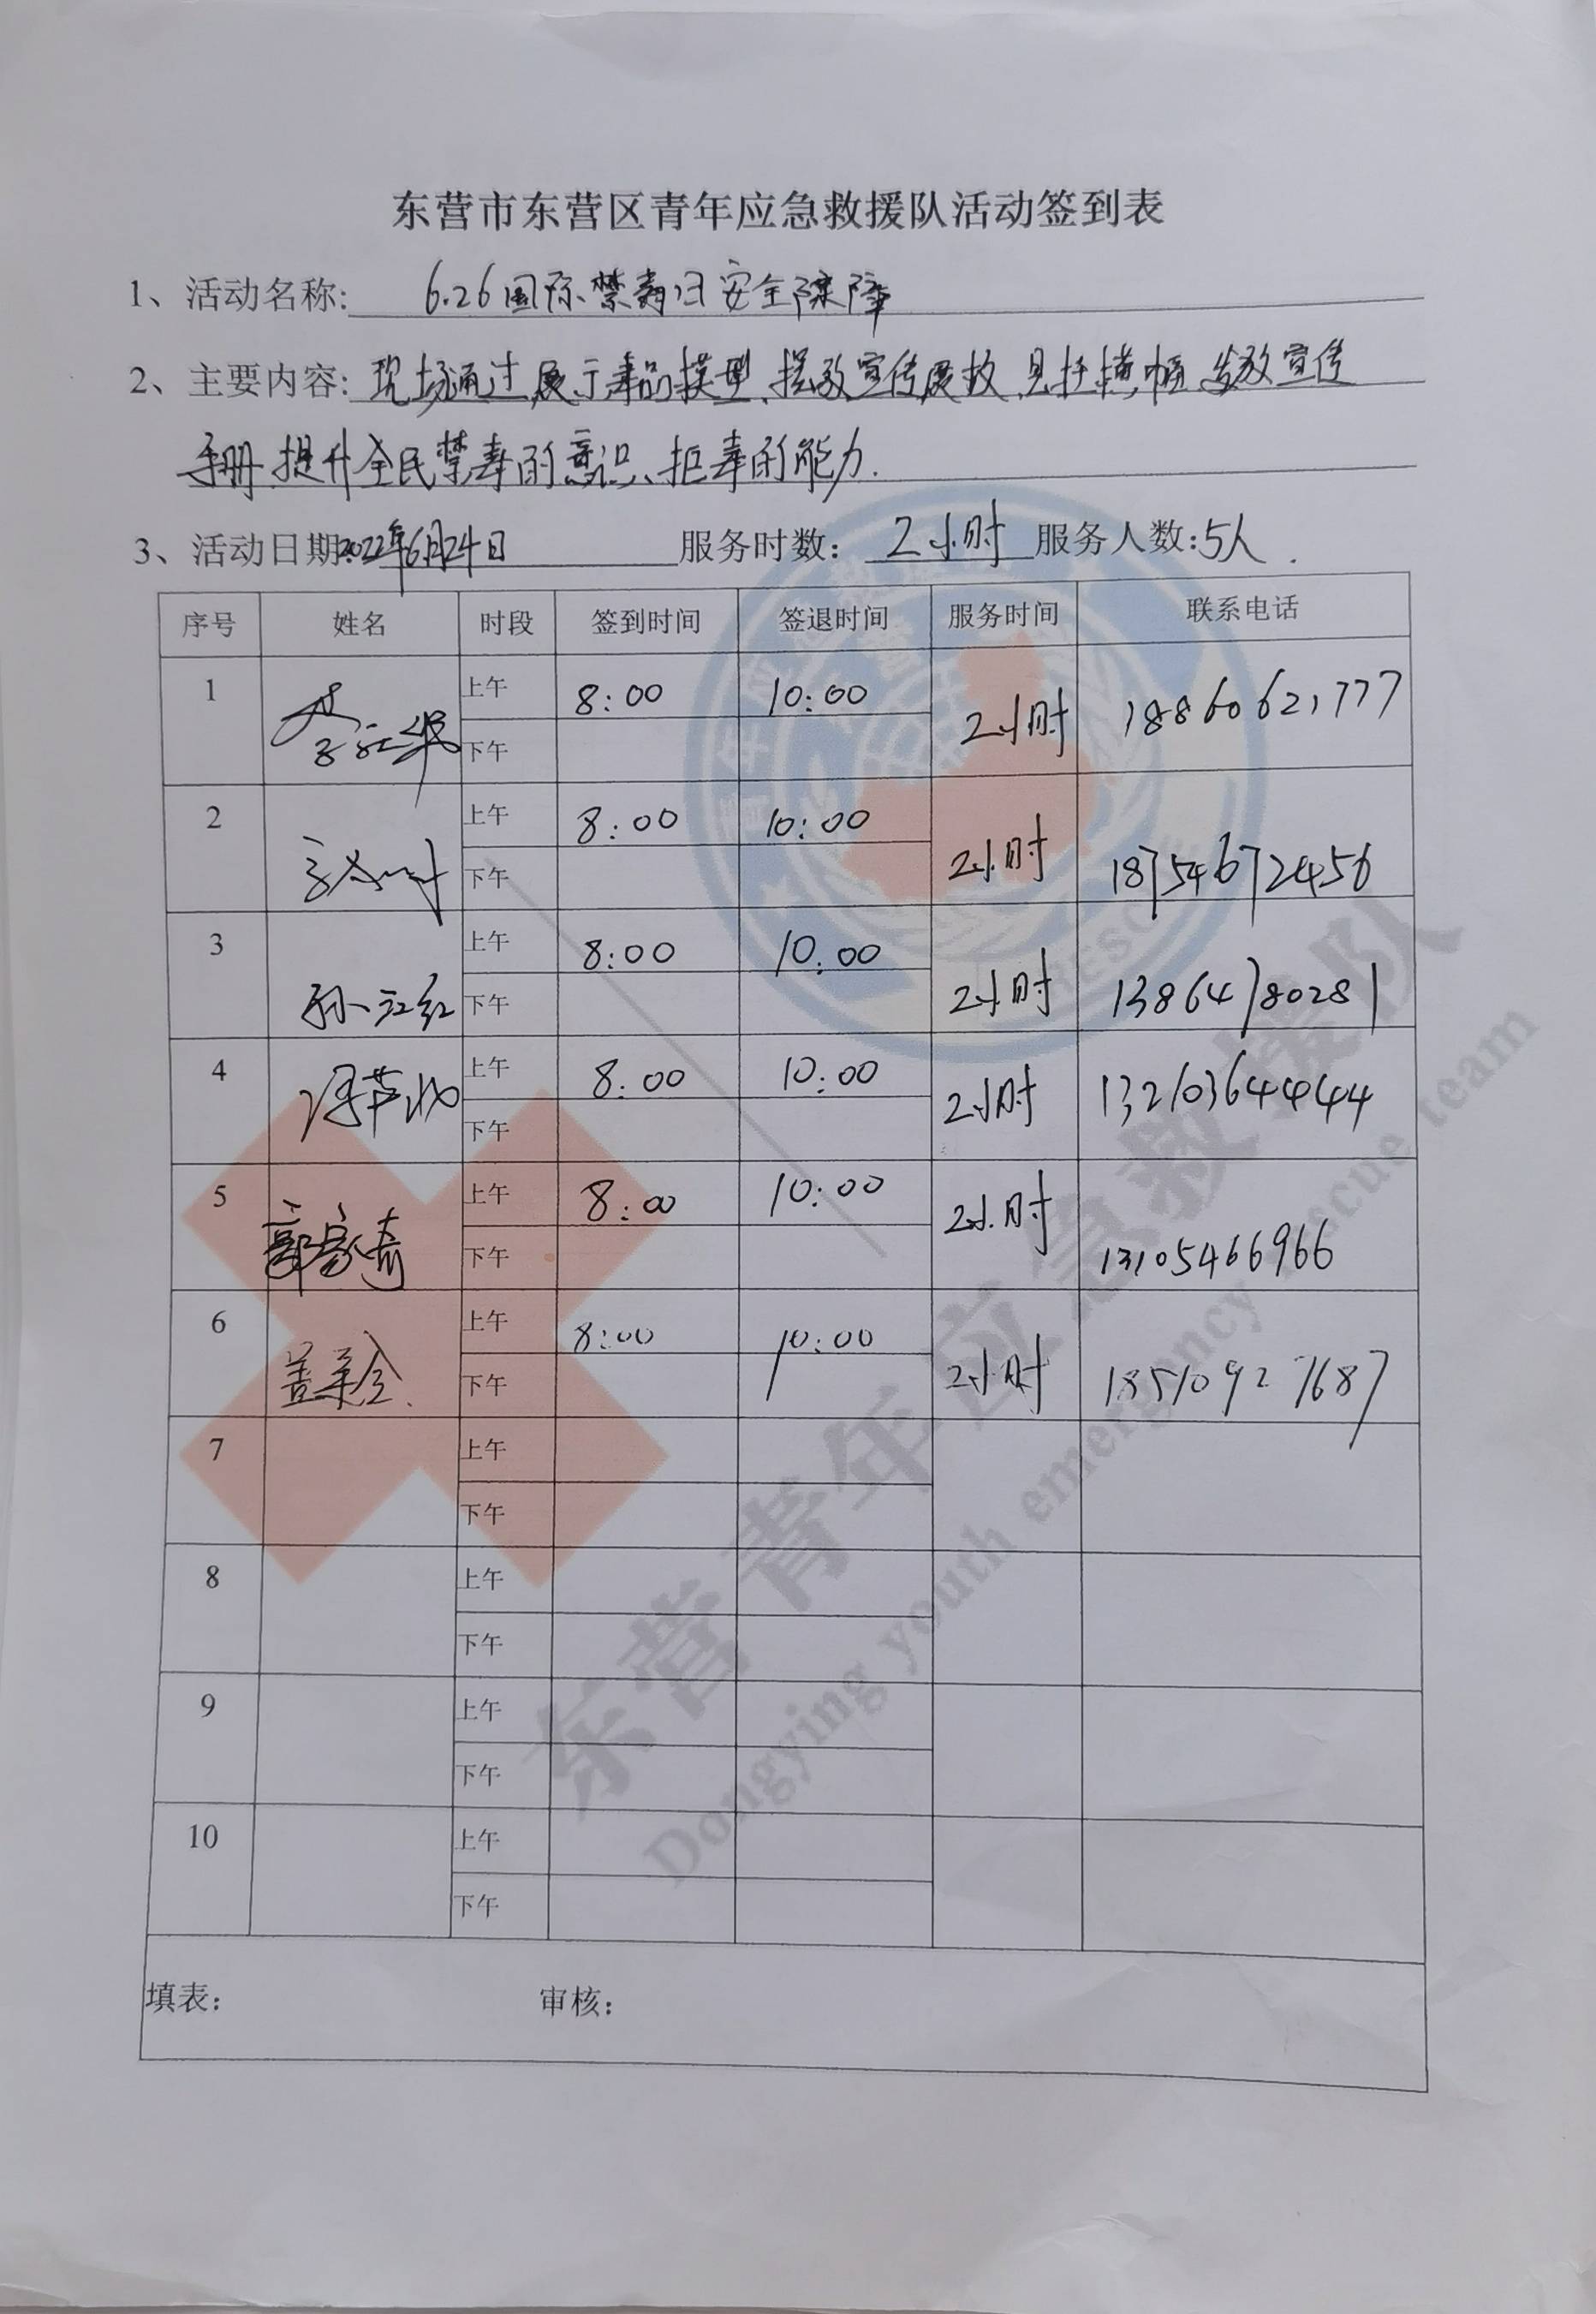 东营市东营区青年应急救援队活动签到表
1、活动名称: 6.26国际禁毒日安全保障
2、主要内容: 现场通过展示毒品模型、摆放宣传展板、悬挂横幅、发放宣传
手册 提升全民禁毒的意识、拒毒的能力.
3、活动日期:2022年6月24日 服务时数: 2小时 服务人数:5人.
序号 姓名 时段 签到时间 签退时间 服务时间 联系电话
1 上午 8:00 10:00 2小时 18860621777
下午
2 上午 8:00 10:00 2小时 18754672456
下午
3 孙江红 上午 8:00 10:00 2小时 13864780281
下午
4 上午 8:00 10:00 2小时 13210364444
下午
5 郭家奇 上午 8:00 10:00 2小时 13105466966
下午
6 上午 8:00 10:00 2小时 18510927687
下午
7 上午
下午
8 上午
下午
9 上午
下午
10 上午
下午
填表: 审核:
东营青年应急救援队
Dongying youth emergency rescue team